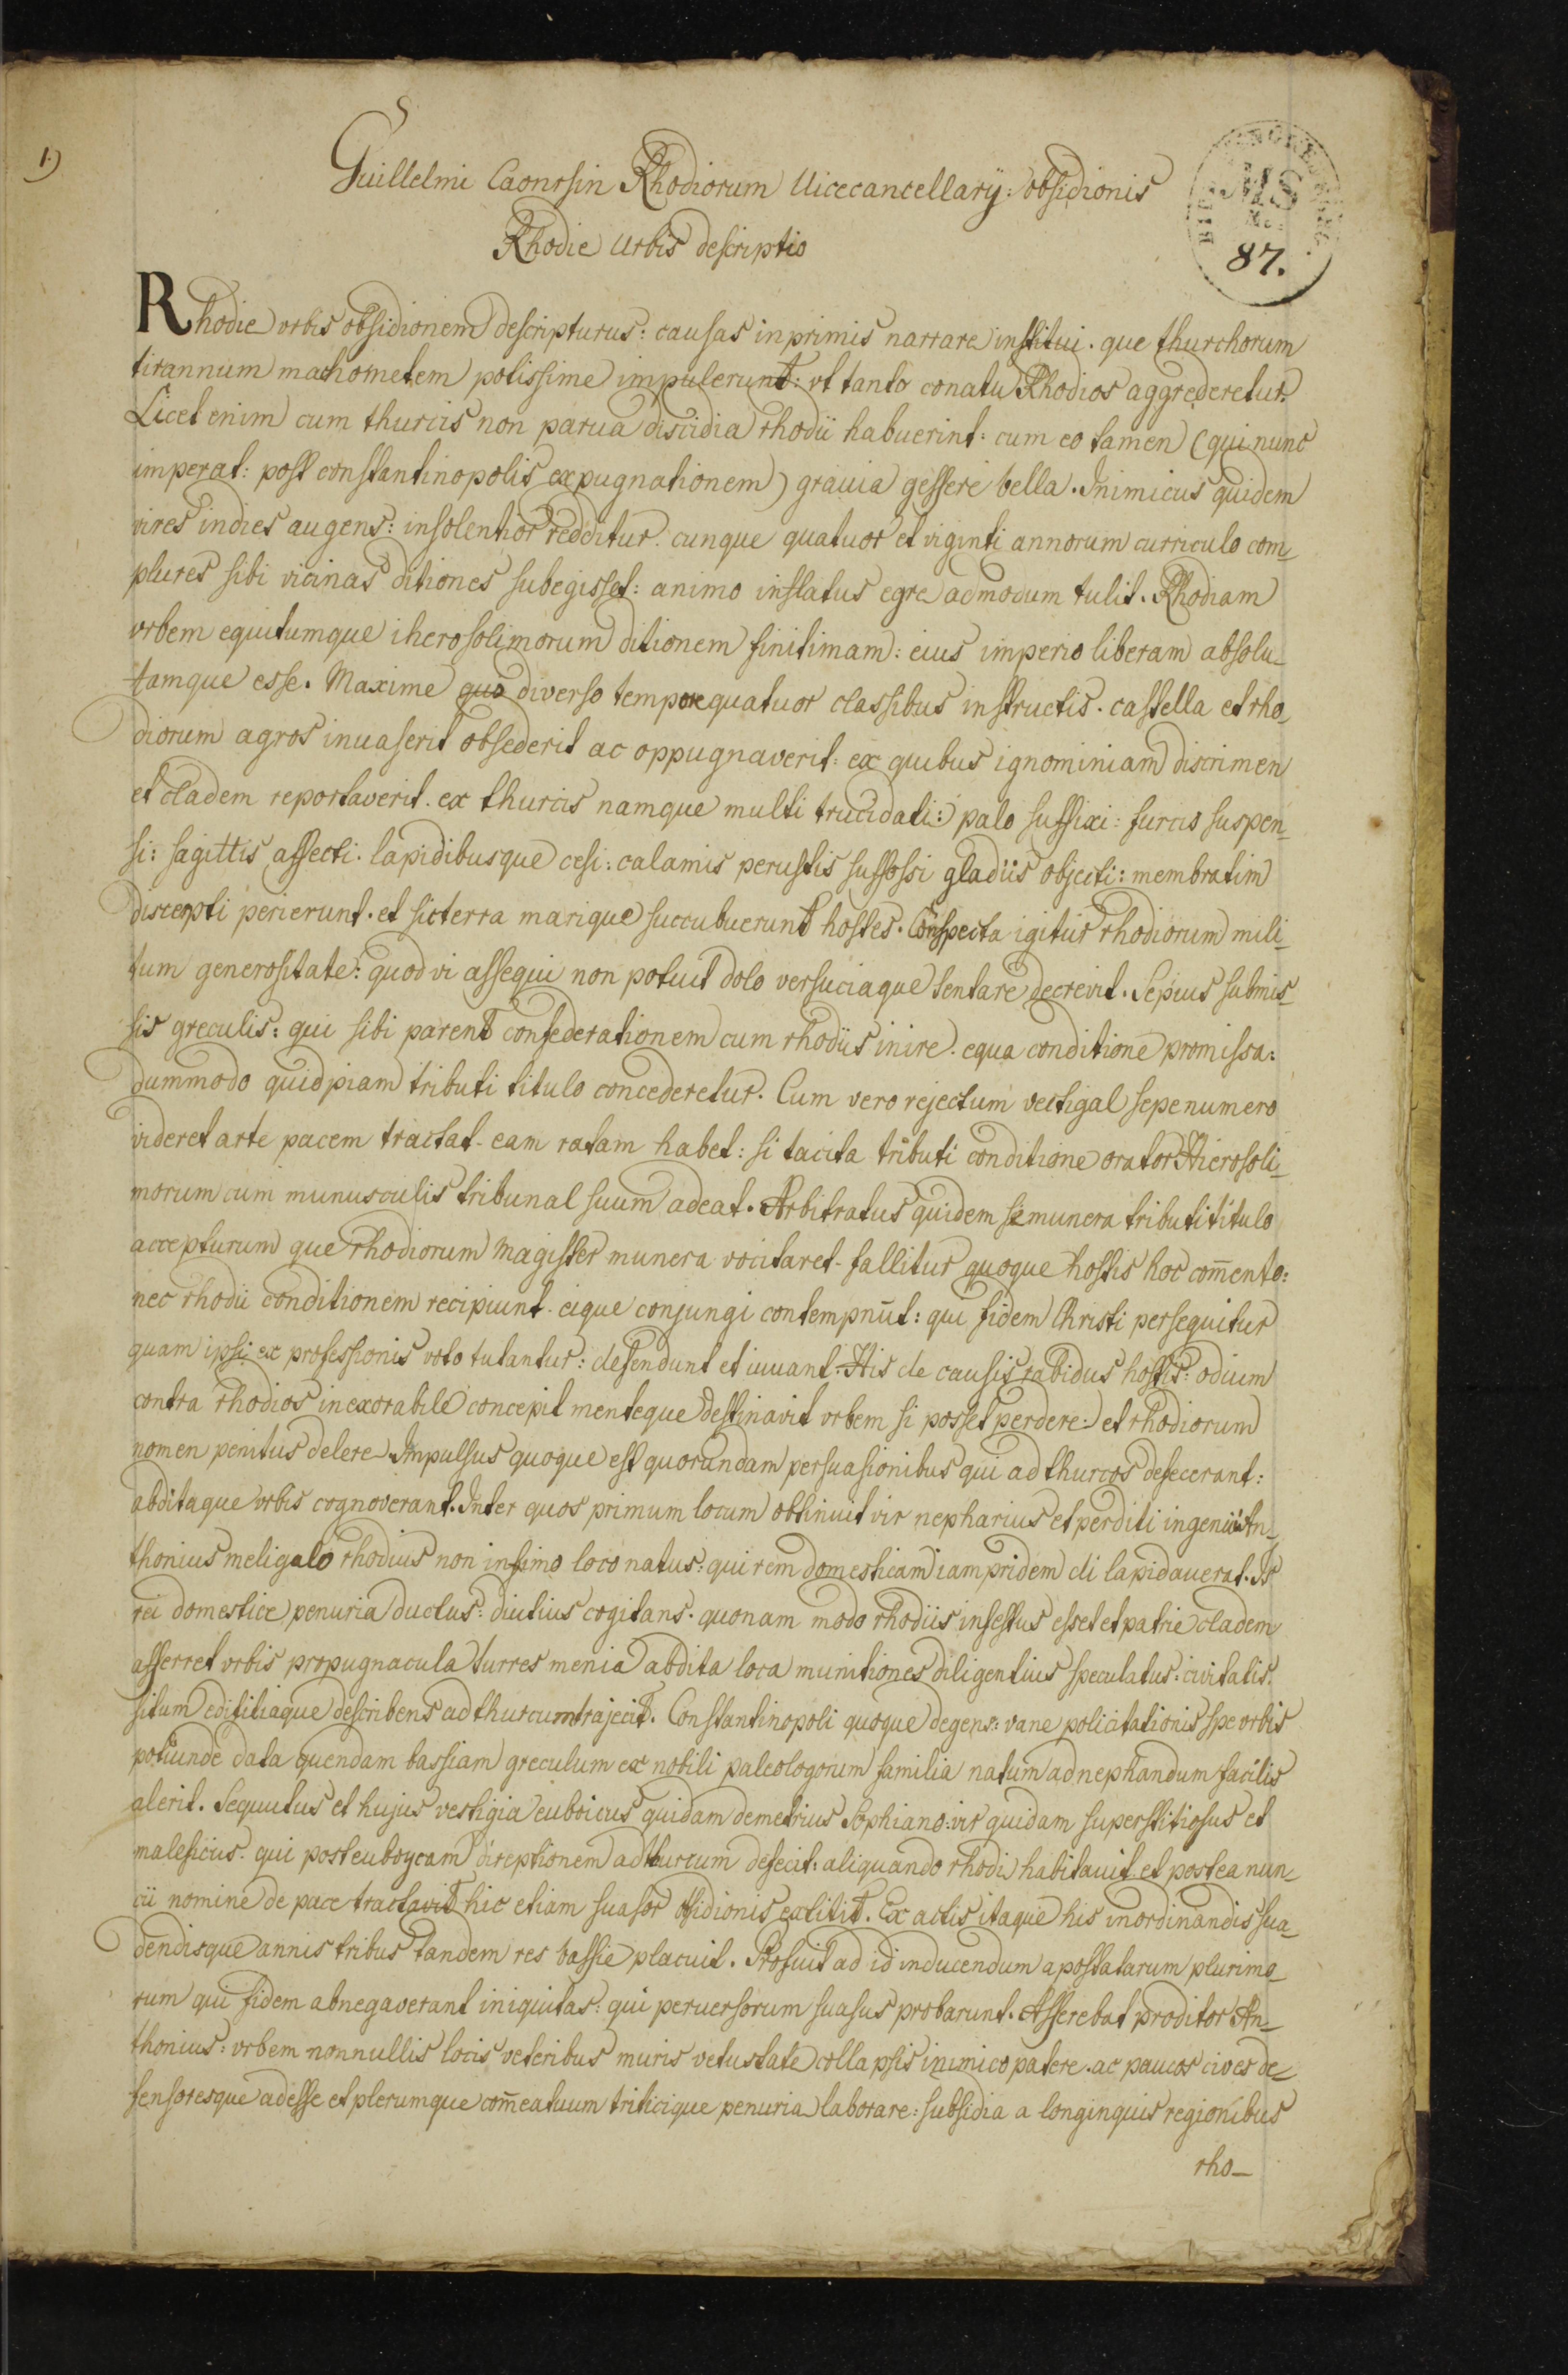 1)
Guillelmi Caonrsin Rhodiorum Uicecancellarÿ: obsidionis
Rhodie urbis descriptio
MS
87.
Rhodie vrbis obsidionem descripturus: causas inprimis narrare institui. que thurchorum
tirannum machometem potissime impulerunt: vt tanto conatu Rhodios aggrederetur.
Licet enim cum thurcis non parua discidia rhodii habuerint: cum eo tamen (qui nunc
imperat: post constantinopolis expugnationem) grauia gessere bella. Inimicus quidem
vires indies augens: insolentior redditur. cunque quatuor et viginti annorum curriculo com-
plures sibi vicinas ditiones subegisset: animo inflatus egre admodum tulit. Rhodiam
vrbem equitumque iherosolimorum ditionem finitimam: eius imperio liberam absolu-
tamque esse. Maxime quo diverso tempore quatuor classibus instructis. castella et rho-
diorum agros inuaserit obsederit ac oppugnaverit: ex quibus ignominiam discrimen
et cladem reportaverit. ex thurcis namque multi trucidati: palo suffixi: furcis suspen-
si: sagittis affecti. lapidibusque cesi: calamis perustis suffossi gladiis objecti: membratim
discerpti perierunt. et sic terra marique succubuerunt hostes. Conspecta igitur rhodiorum mili-
tum generositate: quod vi assequi non potuit dolo versuciaque tentare decrevit. Sepius submis-
sis greculis: qui sibi parent confederationem cum rhodiis inire. equa conditione promissa:
dummodo quidpiam tributi titulo concederetur. Cum vero rejectum vectigal sepenumero
videret arte pacem tractat. eam ratam habet: si tacita tributi conditione orator Hierosoli-
morum cum munusculis tribunal suum adeat. Arbitratus quidem se munera tributi titulo
accepturum que rhodiorum Magister munera vocitaret. fallitur quoque hostis hoc com̄ento:
nec rhodii conditionem recipiunt. eique conjungi contempnūt: qui fidem Christi persequitur
quam ipsi ex professionis voto tutantur: defendunt et iuuant. His de causis rabidus hostis: odium
contra rhodios inexorabile concepit menteque destinavit vrbem si posset perdere: et rhodiorum
nomen penitus delere. Impulsus quoque est quorundam persuasionibus qui ad thurcos defecerant:
abditaque vrbis cognoverant. Inter quos primum locum obtinuit vir nepharius et perditi ingenii An-
thonius meligalo rhodius non infimo loco natus: qui rem domesticam iampridem di lapidauerat. Is
rei domestice penuria ductus: diutius cogitans. quonam modo rhodiis infestus esset et patrie cladem
afferret vrbis propugnacula turres menia abdita loca munitiones diligentius speculatus: civitatis.
situm edifitiaque describens ad thurcum trajecit. Constantinopoli quoque degens: vane policitationis spe vrbis
potiunde data quendam bassiam greculum ex nobili paleologorum familia natum ad nephandum facilis
alerit. Sequutus et hujus vestigia euboicus quidam demetrius Sophiano: vir quidam superstitiosus et
maleficius. qui post euboycam direptionem ad thurcum defecit: aliquando rhodi habitauit et postea nun-
cii nomine de pace tractavit hic etiam suasor obsidionis extitit. Ex actis itaque his inordinandis sua-
dendisque annis tribus tandem res bassie placuit. Profuit ad id inducendum apostatarum plurimo-
rum qui fidem abnegaverant iniquitas: qui peruersorum suasus probarunt. Asserebat proditor An-
thonius: vrbem nonnullis locis veteribus muris vetustate collapsis inimico patere. ac paucos cives de-
fensoresque adesse et plerumque com̄eatuum triticique penuria laborare: subsidia a longinquis regionibus
rho-